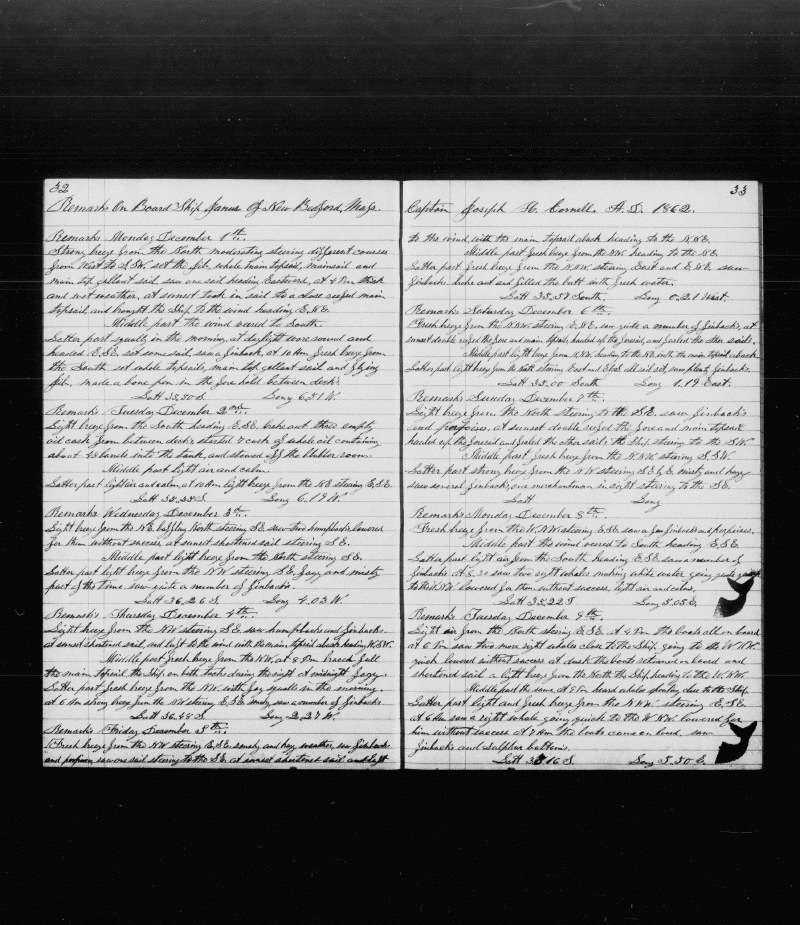 32
Remarks On Board Ship Janus Of New Bedford, Mass.
Remarks Monday December 1st.
Strong breeze from the North moderating steering different courses
from West to S.SW. set the jib, whole main topsail, mainsail and
main top gallant sail, saw one sail heading Eastward, at 4 Pm thick
and wet weather, at sunset took in sail to a close reefed main
topsail, and brought the Ship to the wind heading E.N.E.
Middle part the wind veared to South.
Latter part squally in the morning, at daylight wore round and
headed E.S.E. set some sail, saw a finback, at 10 Am fresh breeze from
the South set whole topsails, main top gallant sail and flying
jib, made a bone pen in the fore hold between decks.
Latt 35,50 S. Long 6,51 W.
Remarks Tuesday December 2nd.
Light breeze from the South heading E.S.E. broke out three empty
oil cask from between decks started cask of whale oil containing
about barels into the tank, and stowed off the blubber room.
Middle part light air and calm.
Latter part light air and calm, at 10 Am light breeze from the NE steering E.S.E.
Latt S. Long 6.19 W.
Remarks Wednesday December 3rd.
Light breeze from the N.E. baffling North steering S.E. saw two humpbacks, lowered
for them without success, at sunset shortened sail steering S.E.
Middle part light breeze from the North steering S.E.
Latter part light breeze from the N.W. steering S.E. foggy and misty
part of the time saw quite a number of finbacks.
Latt 36,26 S. Long 4.03 W.
Remarks Thursday December 4th.
Light breeze from the NW steering S.E. saw humpbacks and finbacks.
at sunset shortened sail, and luft to the wind with the main topsail aback heading W.SW.
Middle part fresh breeze from the N.W, at 8 Pm braced full
the main topsail the Ship on both tacks during the night at midnight foggy.
Latter part fresh breeze from the N.W. with fog squalls in the morning.
at 6 Am strong breeze from the NW steering E,S,E smoky, saw a number of finbacks.
Latt 36.48 S. Long 2,27 W.
Remarks Friday December 5th.
Fresh breeze from the N.W steering E,S,E. smoky and hazy weather, saw finbacks
and porpoises, saw one sail steering to the SE. at sunset shortened sail and luft
33
Captain Joseph H. Cornell. A.D. 1862.
to the wind, with the main topsail aback heading to the N.N.E.
Middle part fresh breeze from the N.W. heading to the N.E
Latter part fresh breeze from the N.N.W steering East and E.N.E. saw
finbacks. broke out and filled the butt with fresh water.
Latt 35,57 South, Long 0.21 West.
Remarks Saturday December 6th.
Fresh breeze from the N.NW. steering E.N.E. saw quite a number of finbacks, at
sunset double reefed the fore and main topsails, hauled up the foresail, and furled the other sails.
Middle part light breeze from N.NW. heading to the NE. with the main topsail aback.
Latter part light breeze from the North steering East and E½S. all sail set, saw plenty finbacks.
Latt 35.00 South Long 1.19 East.
Remarks Sunday December 7th.
Light breeze from the North steering to the S.E. saw finbacks
and porpoises, at sunset double reefed the fore and main topsails
hauled up the foresail and furled the other sails the Ship steering to the S.W.
Middle part fresh breeze from the N.NW. steering S,SW.
Latter part strong breeze from the N W steering S.E.½E. misty and hazy
saw several finbacks, one merchantman in sight steering to the S.E.
Latt Long
Remarks Monday December 8th.
Fresh breeze from the W,NW steering E,S,E. saw a few finbacks and porpoises.
Middle part the wind veared to South heading E,S,E.
Latter part light air from the South heading E,S,E. saw a number of
finbacks. At 8.30 saw two right whales making white water going quick
to the N.W. lowered for them without success, light air and calm.
Latt 35,22 S Long 5.05 E.
Remarks Tuesday December 9th.
Light air from the North steering E.S.E. At 4 Pm the boats all on board
at 6 Pm saw two more right whales close to the Ship, going to the W.N.W.
quick lowered without success at dusk the boats returned on board and
shortened sail a light breeze from the North the Ship heading to the W.NW.
Middle part the same at 9 Pm heard whales spouting close to the Ship.
Latter part light and fresh breeze from the N.W. steering E,S,E
at 6 Am saw a right whale going quick to the W.NW. lowered for
him without success at Am the boats came on board, saw
finbacks and Sulphur bottoms.
Latt 16 S. Long 5.50 E.